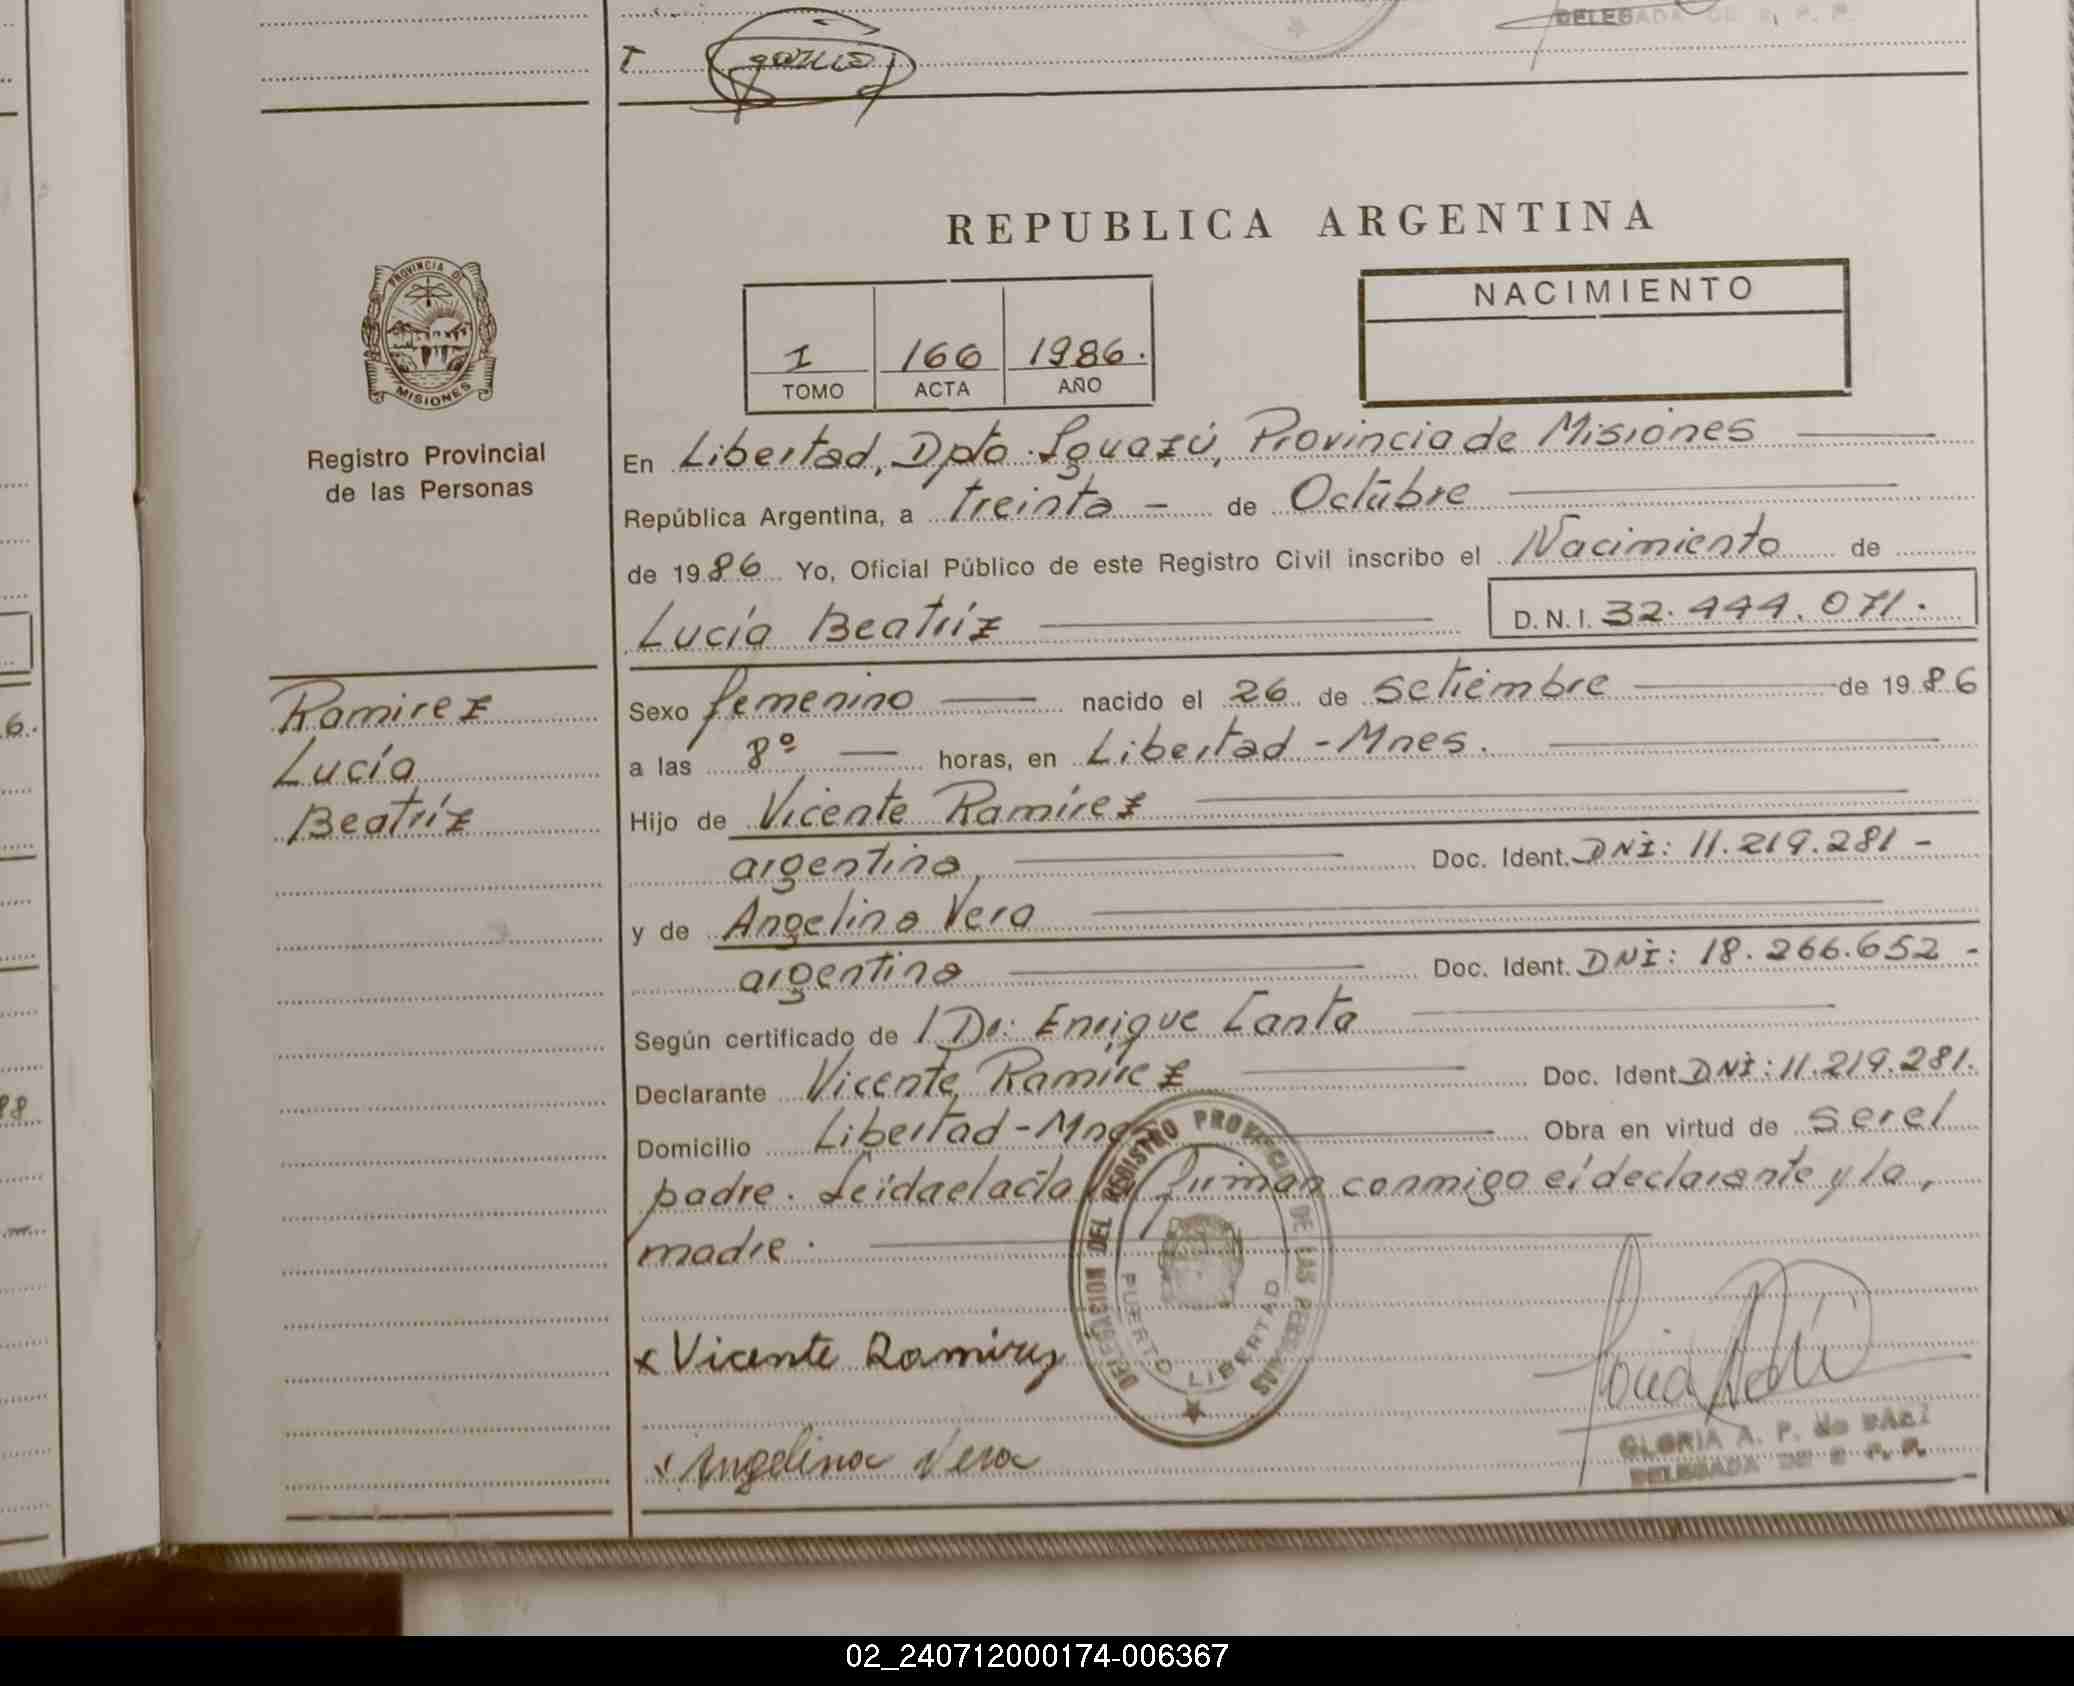 DELEGADA DE R. P. P.
T
REPUBLICA ARGENTINA
PROVINCIA DE
MISIONES
Registro Provincial
de las Personas
I 166 1986.
TOMO ACTA AÑO
NACIMIENTO
En Libertad, Dpto. Iguazú, Provincia de Misiones
República Argentina, a treinta - de Octubre
de 1986 Yo, Oficial Público de este Registro Civil inscribo el Nacimiento de
Lucía Beatríz D. N. I. 32.444.071.
Ramirez
Lucía
Beatríz
Sexo femenino nacido el 26 de setiembre de 1986
a las 8º horas, en Libertad - Mnes.
Hijo de Vicente Ramírez
argentino, Doc. Ident. DNI: 11.219.281 -
y de Angelina Vera
argentina Doc. Ident. DNI: 18.266.652 -
Según certificado de Dr. Enrique Canta
Declarante Vicente Ramírez Doc. Ident. DNI: 11.219.281.
Domicilio Libertad - Mnes Obra en virtud de ser el
padre. Leída el acta la firman conmigo el declarante y la,
madre.
DELEGACION DEL REGISTRO PROVINCIAL DE LAS PERSONAS
PUERTO LIBERTAD
x Vicente Ramirez
x Angelina Vera
GLORIA A. P. de BAEZ
DELEGADA DE R. P. P.
6.
88
02_240712000174-006367